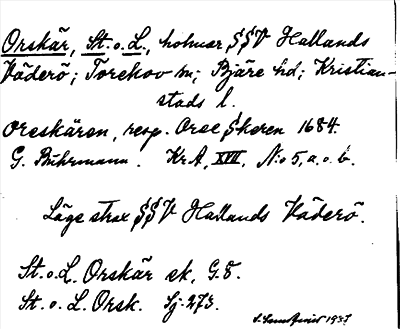 Orskär, St. o. L., holmar SSV Hallands
Väderö; Torekov sn; Bjäre hd; Kristian-
stads l.
Oreskären, resp. Orse Skeren 1684.
G. Buhrmann. KrA, XVII, N:o 5, a. o. b.
Läge strax SSV Hallands Väderö.
St. o. L. Orskär sk. G.8.
St. o. L. Orsk. Sj. 273.
1937